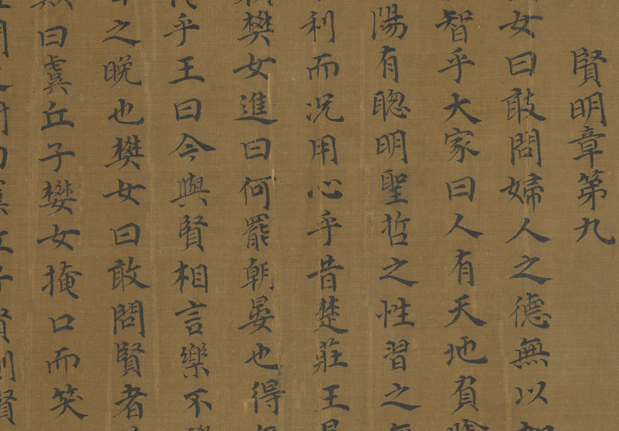 賢明章第九
女曰敢問婦人之德無以
智乎大家曰人有天地負
陽有聰明聖哲之性習之
利而況用心乎昔楚莊王
樊女進曰何罷朝晏也得
乎王曰今與賢相言樂不
之晚也樊女曰敢問賢者
曰虞丘子樊女掩口而笑
丘子賢則賢